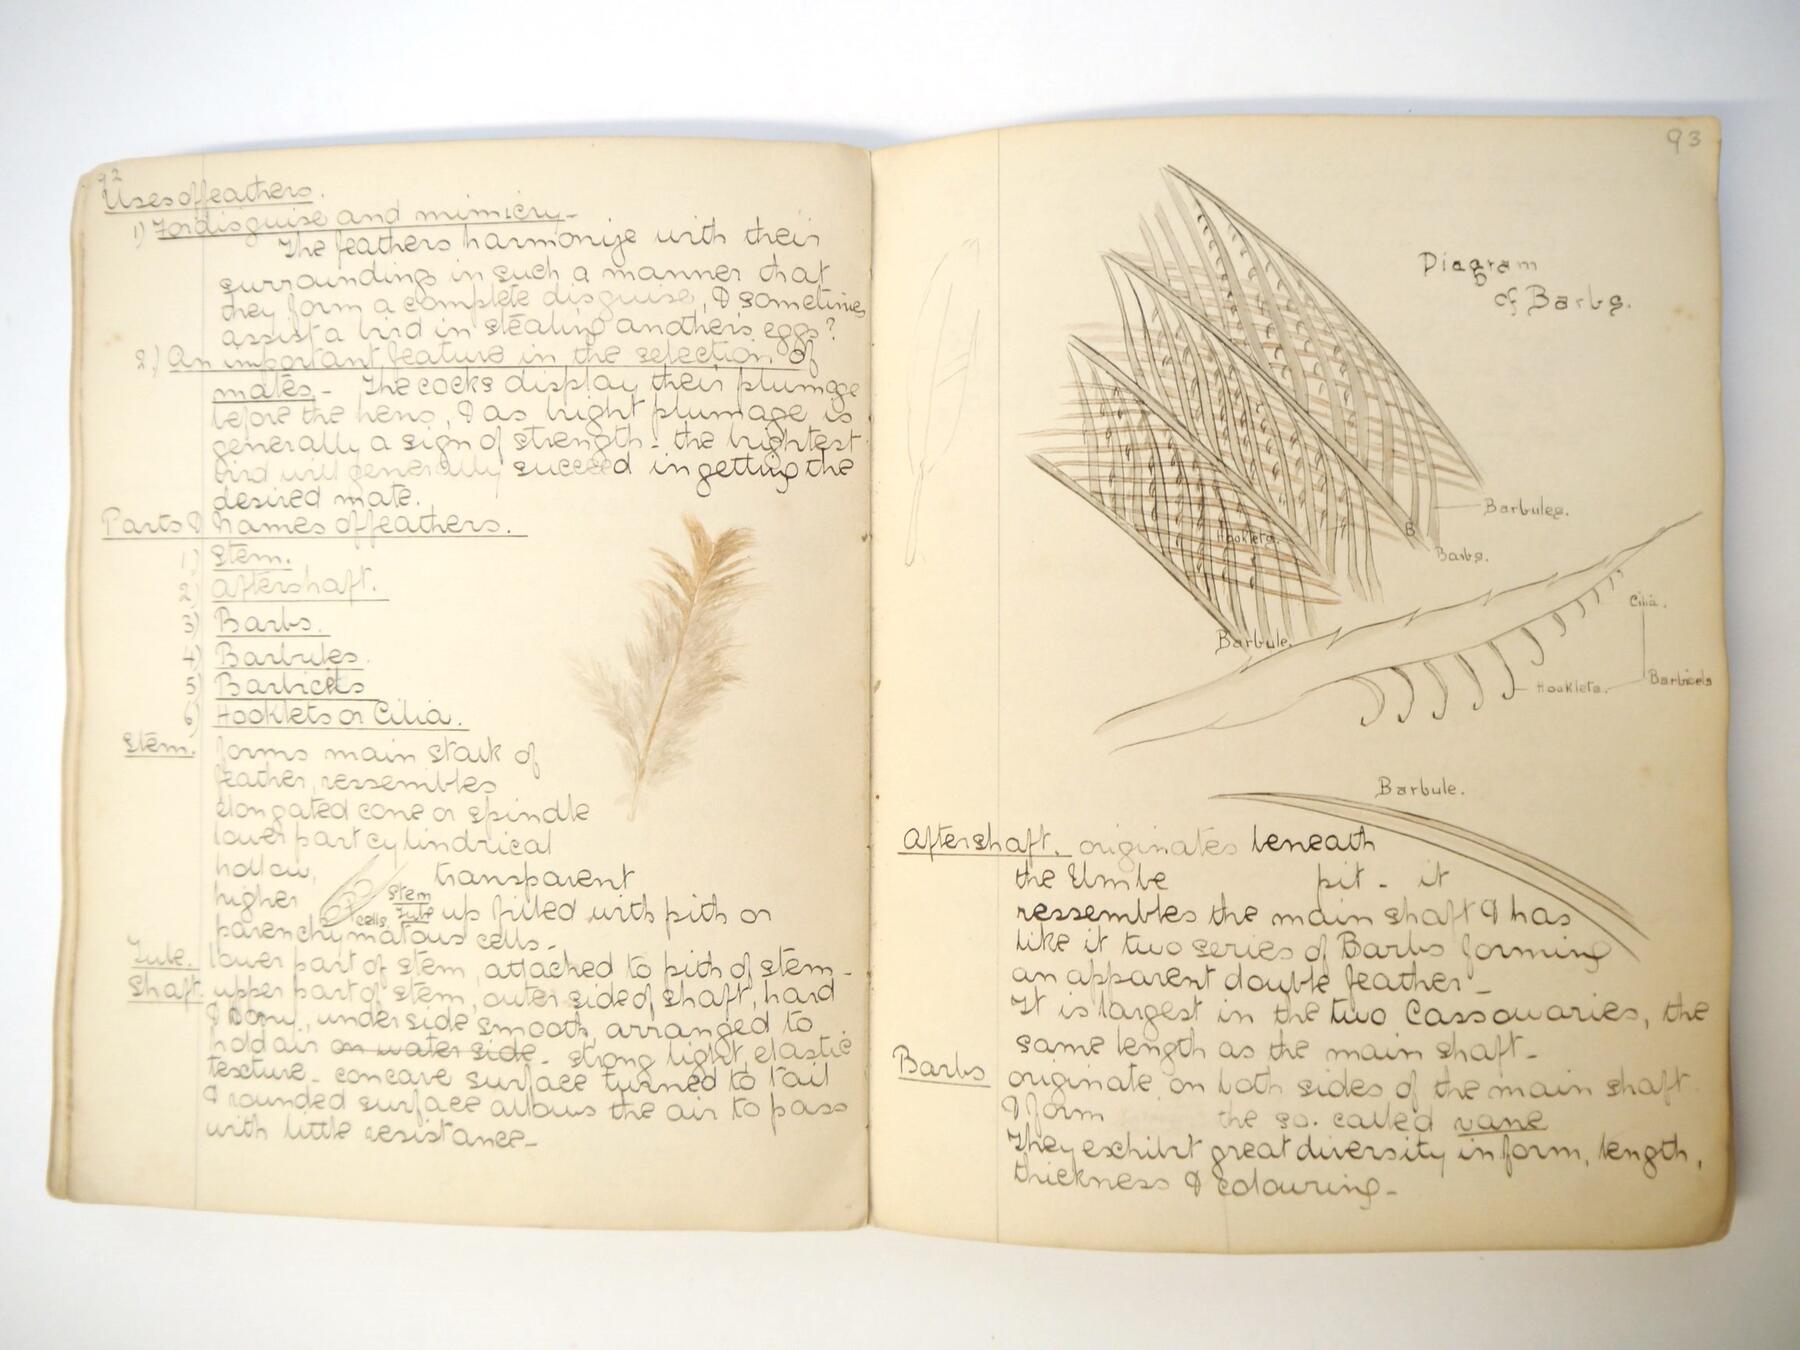 92
Uses of feathers.
1) For disguise and mimicry -
The feathers harmonize with their
surroundings in such a manner that
they form a complete disguise, & sometimes
assist a bird in stealing another's eggs?
2.) An important feature in the selection of
mates - The cocks display their plumage
before the hens, & as bright plumage is
generally a sign of strength - the brightest
bird will generally succeed in getting the
desired mate.
Parts & names of feathers.
1) Stem.
2) Aftershaft.
3) Barbs.
4) Barbules.
5) Barbicels
6) Hooklets or Cilia.
Stem. forms main stalk of
feather, ressembles
elongated cone or spindle
lower part cylindrical
hollow, transparent
higher up filled with pith or
Stem
Tube
cells
parenchymatous cells. -
Tube. lower part of stem, attached to pith of stem -
Shaft. upper part of stem, outer side of shaft, hard
& bony, under side smooth, arranged to
hold air on water side - strong light, elastic
texture - concave surface turned to tail
& rounded surface allows the air to pass
with little resistance -
93
Diagram
of Barbs.
Barbules.
Hooklets.
B
Barbs.
Cilia.
Barbule.
Hooklets.
Barbicels
Barbule.
Aftershaft. originates beneath
the Umbe pit - it
ressembles the main shaft & has
like it two series of Barbs forming
an apparent double feather -
It is largest in the two Cassowaries, the
same length as the main shaft -
Barbs originate on both sides of the main shaft
& form the so. called vane
They exhibit great diversity in form, length,
thickness & colouring -